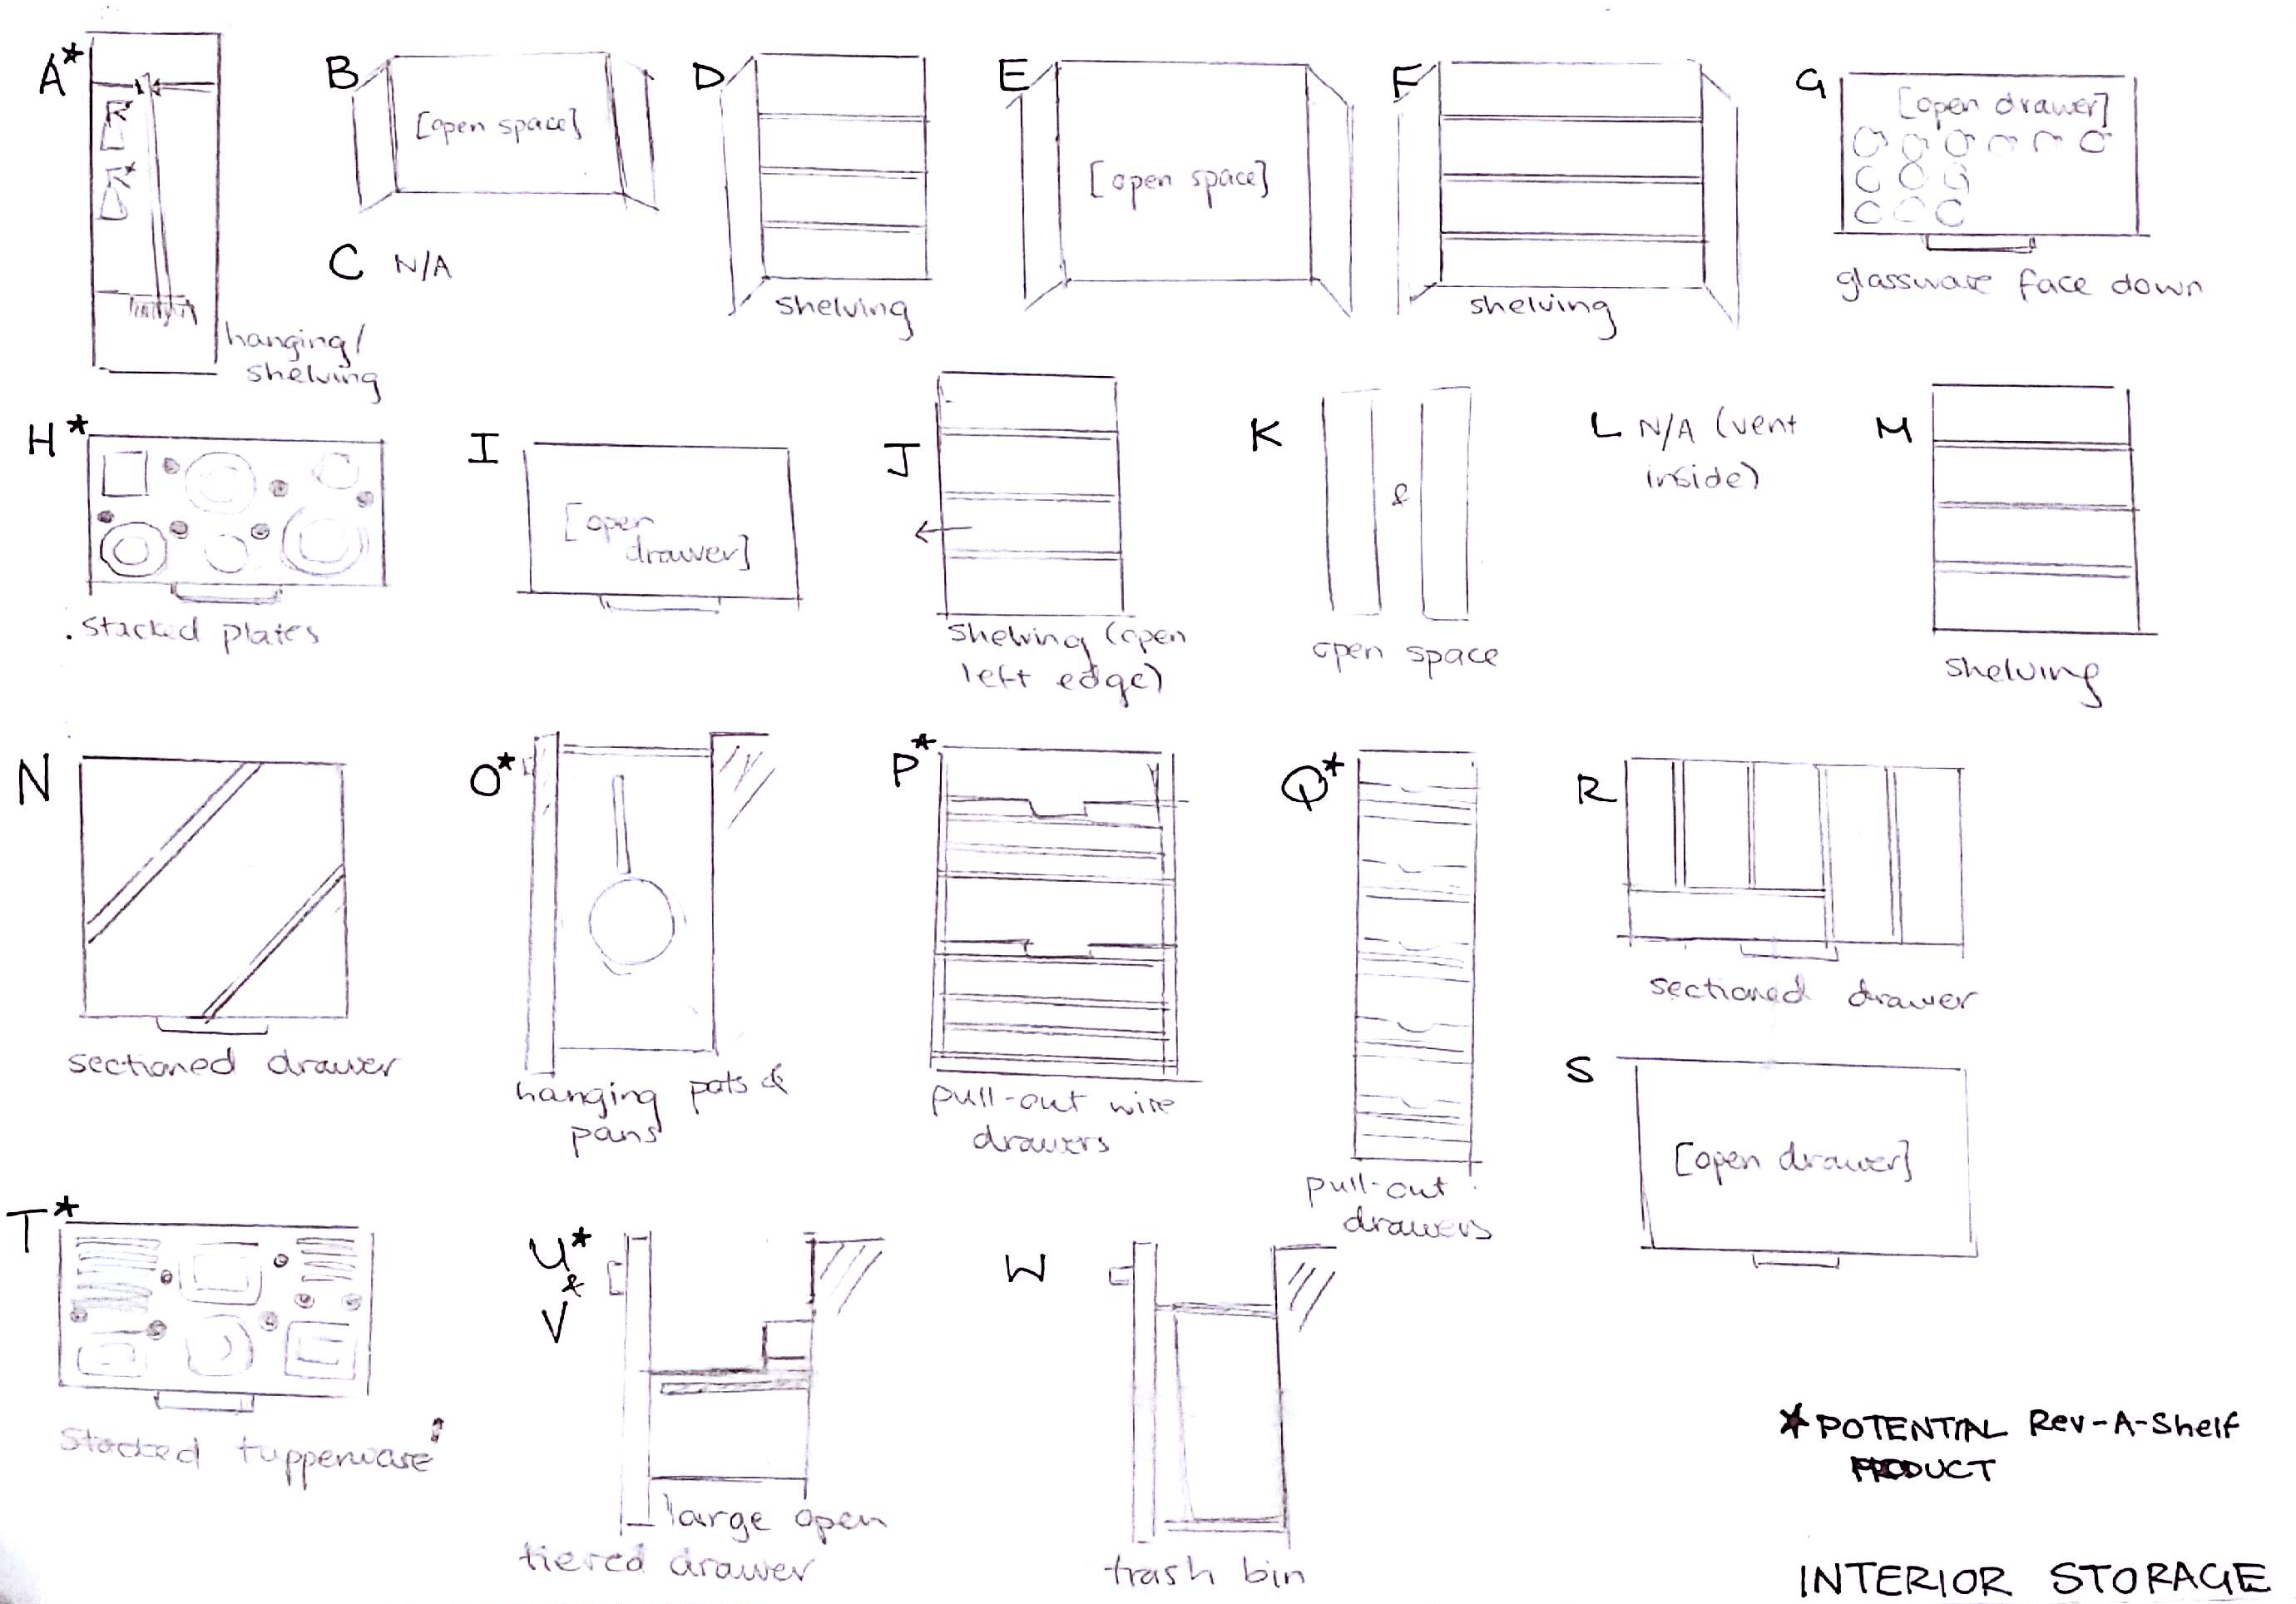 A*
hanging/
shelving
B
[open space]
C N/A
D
shelving
E
[open space]
F
shelving
G
[open drawer]
glassware face down
H*
stacked plates
I
[open
drawer]
J
shelving (open
left edge)
K
&
open space
L N/A (vent
inside)
M
shelving
N
sectioned drawer
O*
hanging pots &
pans
P*
pull-out wire
drawers
Q*
pull-out
drawers
R
sectioned drawer
S
[open drawer]
T*
stacked tupperware
U*
&
V
large open
tiered drawer
W
trash bin
*POTENTIAL Rev-A-Shelf
PRODUCT
INTERIOR STORAGE